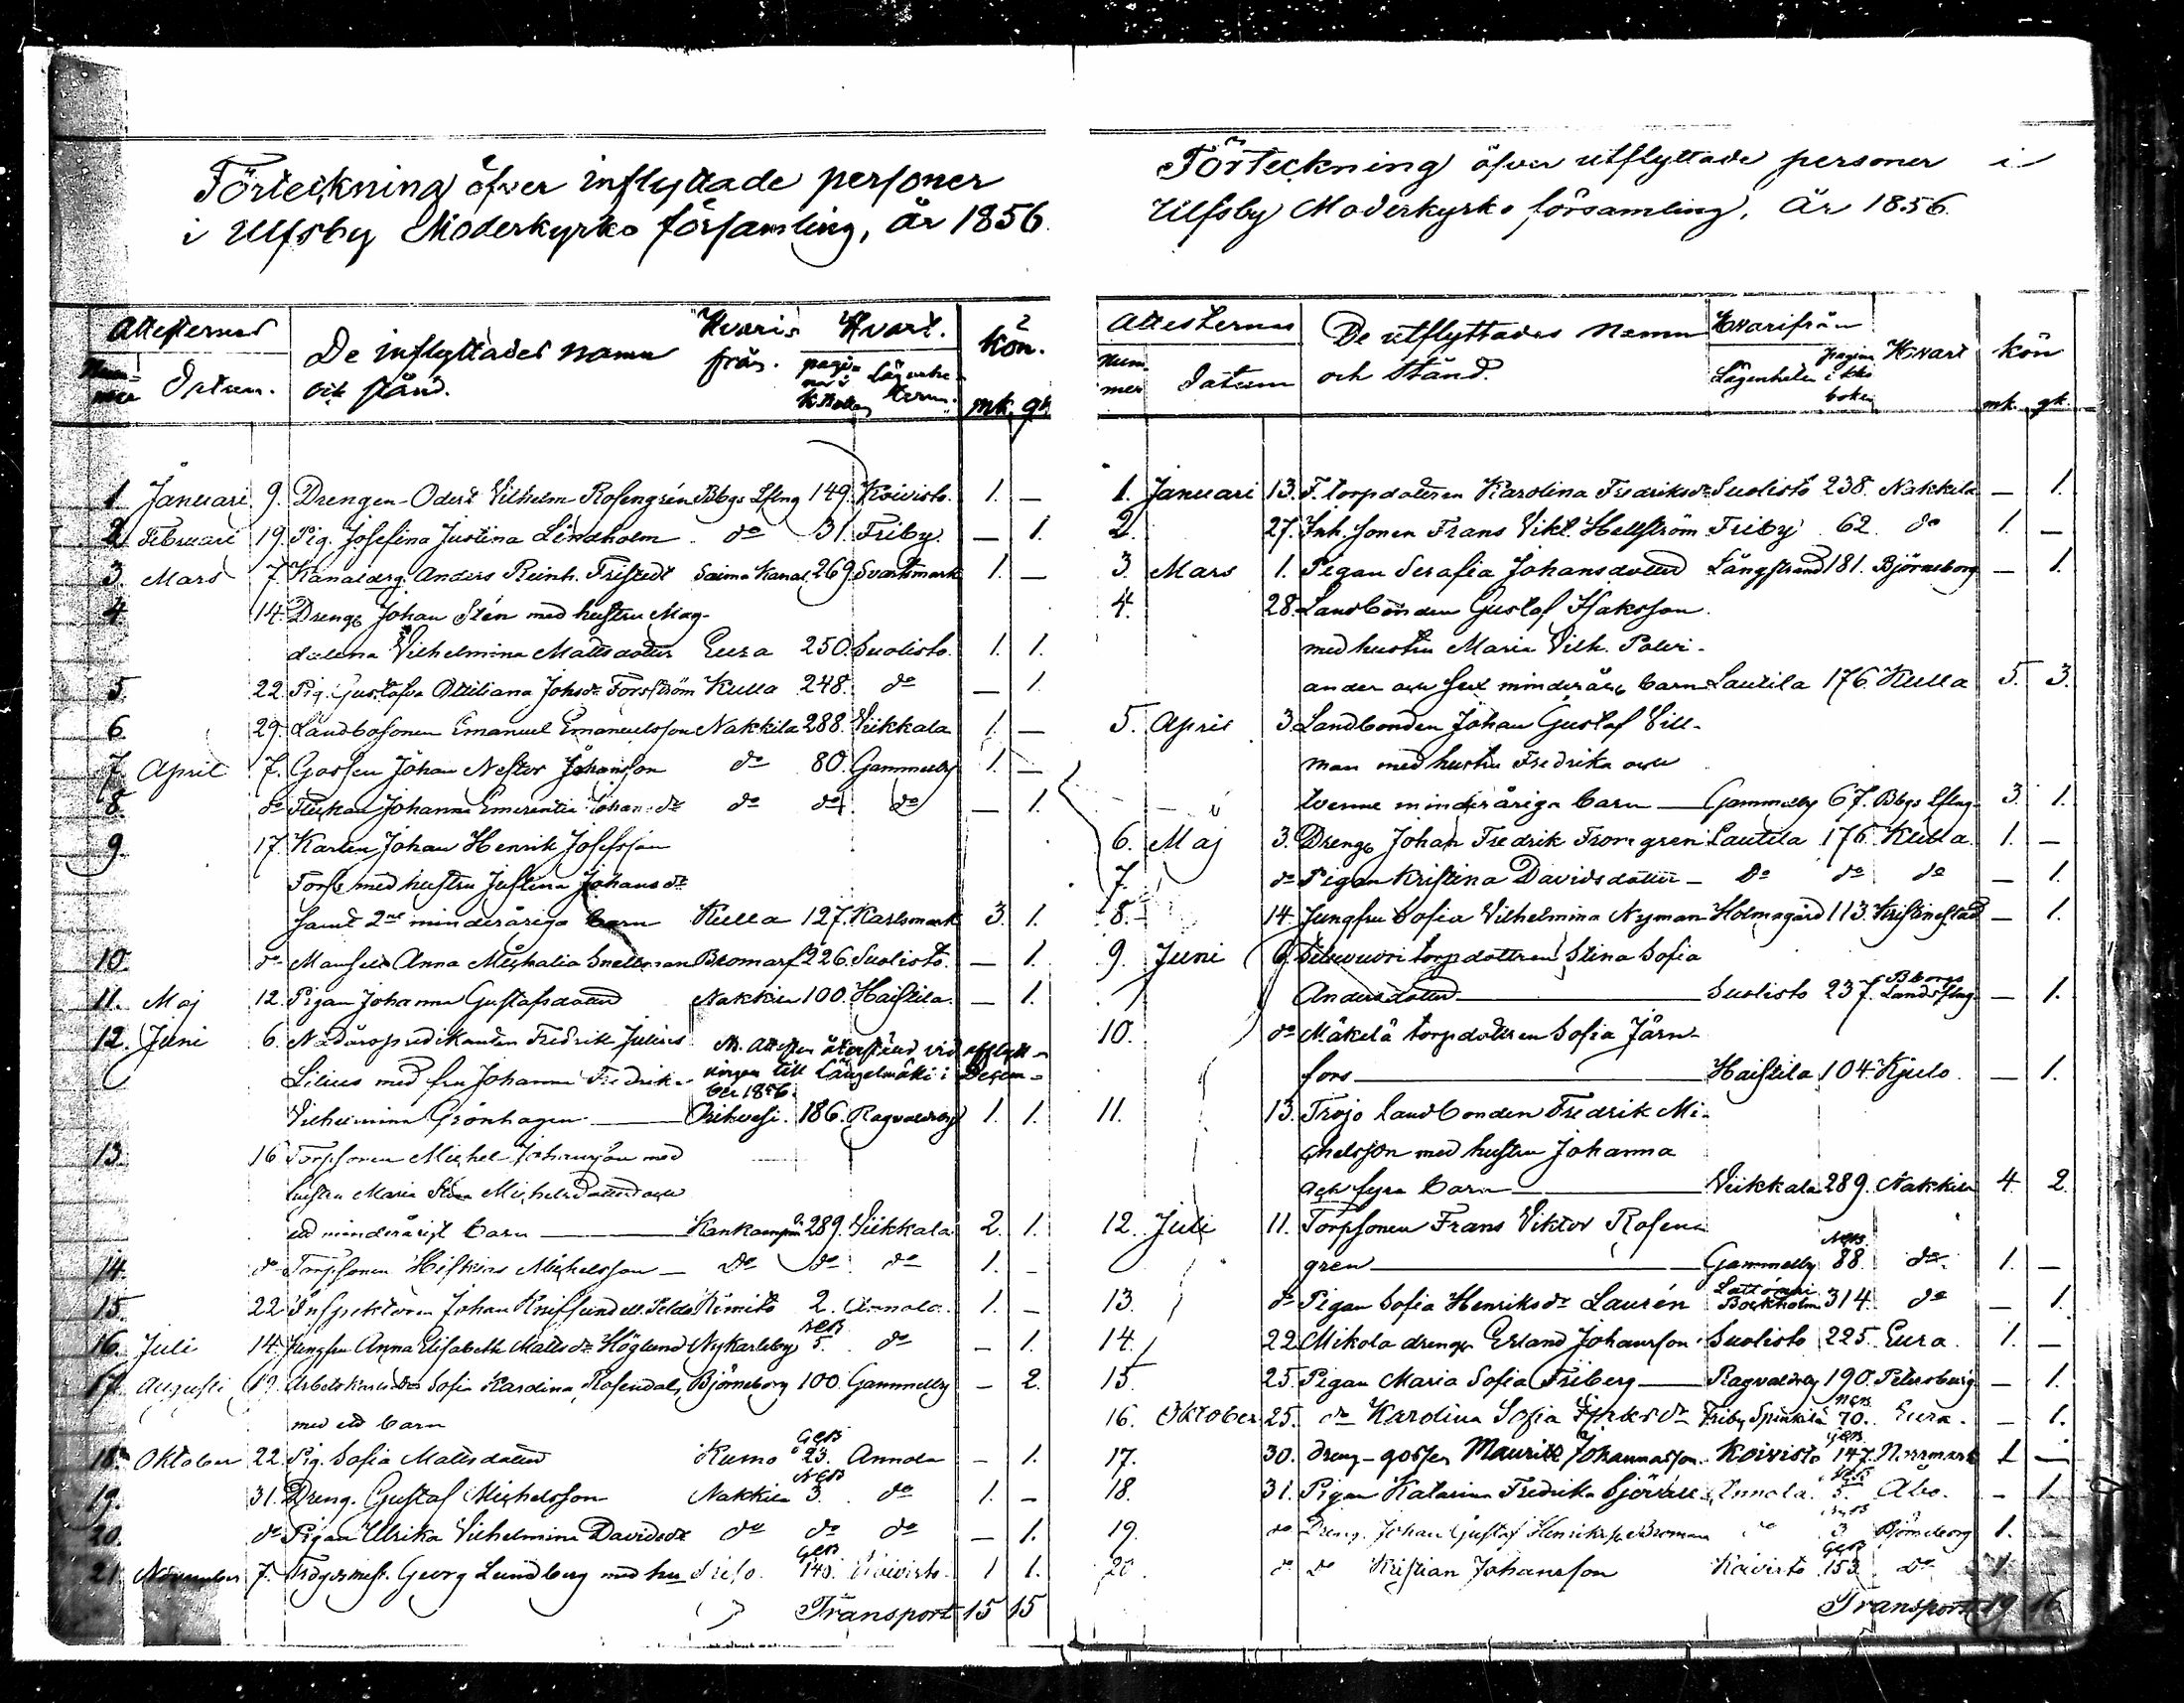 Förteckning öfver inflyttade personer
i Ulfsby Moderkyrko församling, år 1856.
Attesternas
Nummer
Datum.
De inflyttades namn
och stånd.
Hvarifrån.
Hvart.
Lägenheterna.
kön.
mk. qk.
1. Januari 9. Drengen Odert Vilhelm Rosengrén Bbgs Lfkng 149. Koivisto. 1. —
2. Februari 19. Pig. Josefina Justina Lindholm do 31. Friby. — 1.
3. Mars 7. Kanaldrg. Anders Reinh. Fristedt Saima Kanal 269. Svartsmark 1. —
4 14. Dreng Johan Stén med hustru Mag-
dalena Vilhelmina Mattsdotter Eura 250. Suolisto. 1. 1.
5. 22. Pig. Gustafva Ottiliana Johsdr Forsström Kulla 248. do — 1.
6. 29. Landbosonen Emanuel Emanuelsson Nakkila 288. Viikkala 1. —
7. April 7. Gossen Johan Nestor Johansson do 80. Gammelby 1. —
8. do Flickan Johanna Emerentia Johansdr do do do — 1.
9. 17. Karlen Johan Henrik Josefsson
Torsk med hustru Justina Johansdr
samt 2ne minderåriga barn Kulla 127. Karlsmark 3. 1.
10. do Mamsell Anna Mathalia Snellman Bromarf 226. Suolisto. — 1.
11. Maj 12. Pigan Johanna Gustafsdotter Nakkila 100. Haistila. — 1.
12. Juni 6. Nådårspredikanten Fredrik Julius
N. Attesten återstånd vid afflytt-
ningen till Längelmäki i Decem-
ber 1856.
Lilius med fru Johanna Fredrika
Vilhelmina Grönhagen — Orihvesi. 186. Ragvaldsby 1. 1.
13. 16 Torpsonen Michel Johansson med
hustru Maria Stina Michelsdotter och
ett minderårigt barn — Kankaanpää 289. Viikkala. 2. 1.
14. do Torpsonen Hiskias Michelsson — do do do 1. —
15. 22 Inspektoren Johan Kimito 2. Annola. 1. —
16. Juli 14. Jungfru Anna Elisabeth Mattsdr Höglund Nykarleby NCB 5. do — 1.
17. Augusti 19. Arbetskarls Sofia Karolina Rosendal, Björneborg 100. Gammelby — 2.
med ett barn
18. Oktober 22. Pig. Sofia Mattsdotter Kumo GCB 23. Annola — 1.
19. 31. Dreng. Gustaf Michelsson Nakkila NCB 3. do 1. —
20. do Pigan Ulrika Vilhelmina Davidsdr do do do — 1.
21. November 7. Georg Lundberg med hu GCB 140. Koivisto. 1 1.
Transport 15 15
Förteckning öfver utflyttade personer i
Ulfsby Moderkyrko församling, år 1856.
Attesternas
Nummer
Datum
De utflyttades Namn
och stånd.
Hvarifrån
Lägenheten
pagina i kko boken
Hvart
kön
mk. qk.
1. Januari 13. F. torpdottren Karolina Fredriksdr Suolisto 238. Nakkila — 1.
2. 27. Inh. sonen Frans Vikt. Hellström Friby 62. do 1. —
3. Mars 1. Pigan Serafia Johansdotter Långstrand 181. Björneborg — 1.
4. 28. Landbonden Gustaf Isaksson
med hustru Maria Vilh. Paleri-
ander och sex minderårig barn Lautila 176. Kulla 5. 3.
5. April 3. Landbonden Johan Gustaf Vill-
man med hustru Fredrika och
tvenne minderåriga barn — Gammelby 67. Bbgs Lfkng 3. 1.
6. Maj 3. Dreng Johan Fredrik Lautila 176. Kulla. 1. —
7. do Pigan Kristina Davidsdotter — do do do — 1.
8. 14. Jungfru Sofia Vilhelmina Nyman Holmagård 113. Kristinestad — 1.
9. Juni 6. torpdottren Stina Sofia
Andersdotter — Suolisto 237. Bborgs Landsflng — 1.
10. do Mäkelä torpdottren Sofia Järn-
fors — Haistila 104. Kjulo. — 1.
11. 13. Trojo landbonden Fredrik Mi-
chelsson med hustru Johanna
och fyra barn — Viikkala 289. Nakkila 4. 2.
12. Juli 11. Torpsonen Frans Viktor Rosen-
gren — Gammelby NCB 88. do 1. —
13. do Pigan Sofia Henriksdr Laurén Lattomeri Bockholm 314. do — 1.
14. 22. Mikola dreng Erland Johansson Suolisto 225. Eura. 1. —
15. 25. Pigan Maria Sofia Friberg — Ragvaldsby 190. Petersburg — 1.
16. Oktober 25. do Karolina Sofia Friby Spinkilä NCB 70. Eura. — 1.
17. 30. Dreng-gossen Maurits Johannasson. Koivisto GCB 147. Norrmark 1 —
18. 31. Pigan Katarina Fredrika Annola. NCB 5. Åbo. — 1.
19. do Dreng. Johan Gustaf Henrikss. Broman do NCB 3 Björneborg 1. —
20. do do Kristian Johansson Koivisto GCB 153. do 1. —
Transport 19 16